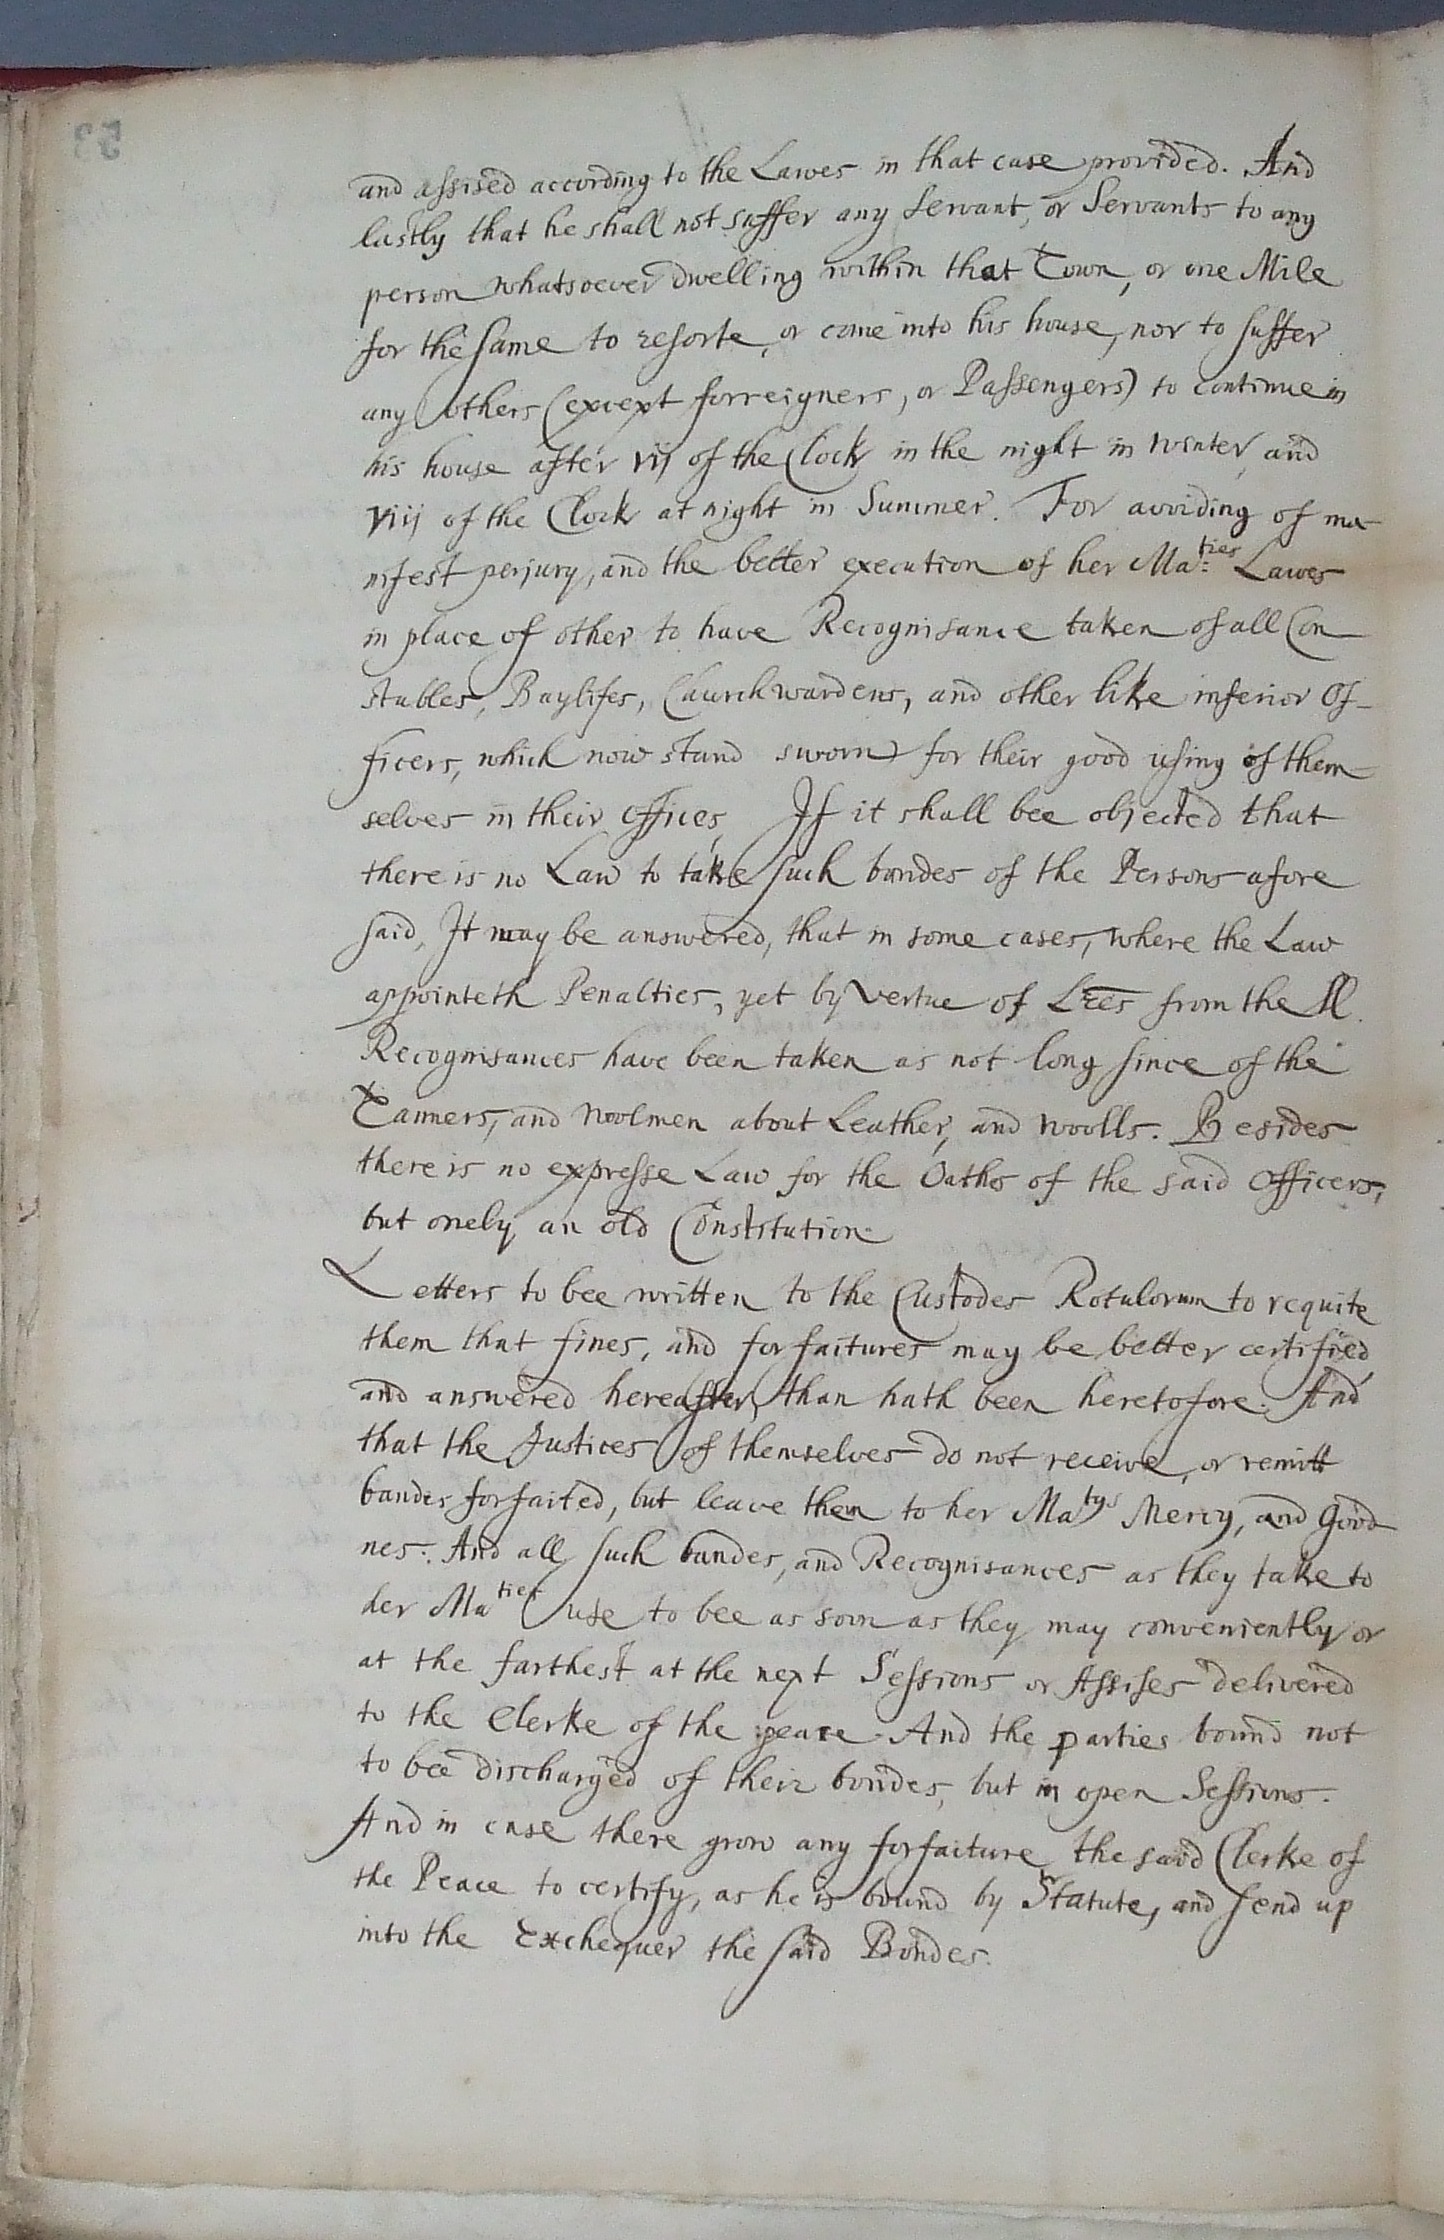 and assised according to the Lawes in that case provided. And
lastly that he shall not suffer any Servant, or Servants to any
person whatsoever dwelling within that Town, or one Mile
for the same to resorte, or come into his house, nor to suffer
any others (except forreigners, or Passengers) to continue in
his house after vij of the Clock in the night in winter, and
viij of the Clock at night in Summer. For avoiding of ma-
nifest perjury, and the better execution of her Ma:ties Lawes
in place of other to have Recognisance taken of all Con-
stables, Baylifes, Churchwardens, and other like inferior Of-
ficers, which now stand sworn for their good using of them-
selves in their offices, If it shall bee objected that
there is no Law to take such bondes of the Persons afore
said, It may be answered, that in some cases, where the Law
appointeth Penalties, yet by vertue of Lr̅e̅s from the Ll.
Recognisances have been taken as not long since of the
Tanners, and Woolmen about Leather, and Woolls. Besides
there is no expresse Law for the Oaths of the said Officers,
but onely an old Constitution.
Letters to bee written to the Custodes Rotulorum to requite
them that fines, and forfaitures may be better certified
and answered hereafter, than hath been heretofore. And
that the Justices of themselves do not receive, or remitt
bandes forfaited, but leave them to her Matys Mercy, and Good-
nes. And all such bandes, and Recognisances as they take to
her Maties use to bee as soon as they may conveniently or
at the farthest at the next Sessions or Assises delivered
to the Clerke of the peace. And the parties bound not
to bee discharged of their bondes, but in open Sessions.
And in case there grow any forfaiture the said Clerke of
the Peace to certify, as he is bound by Statute, and send up
into the Exchequer the said Bondes.
53